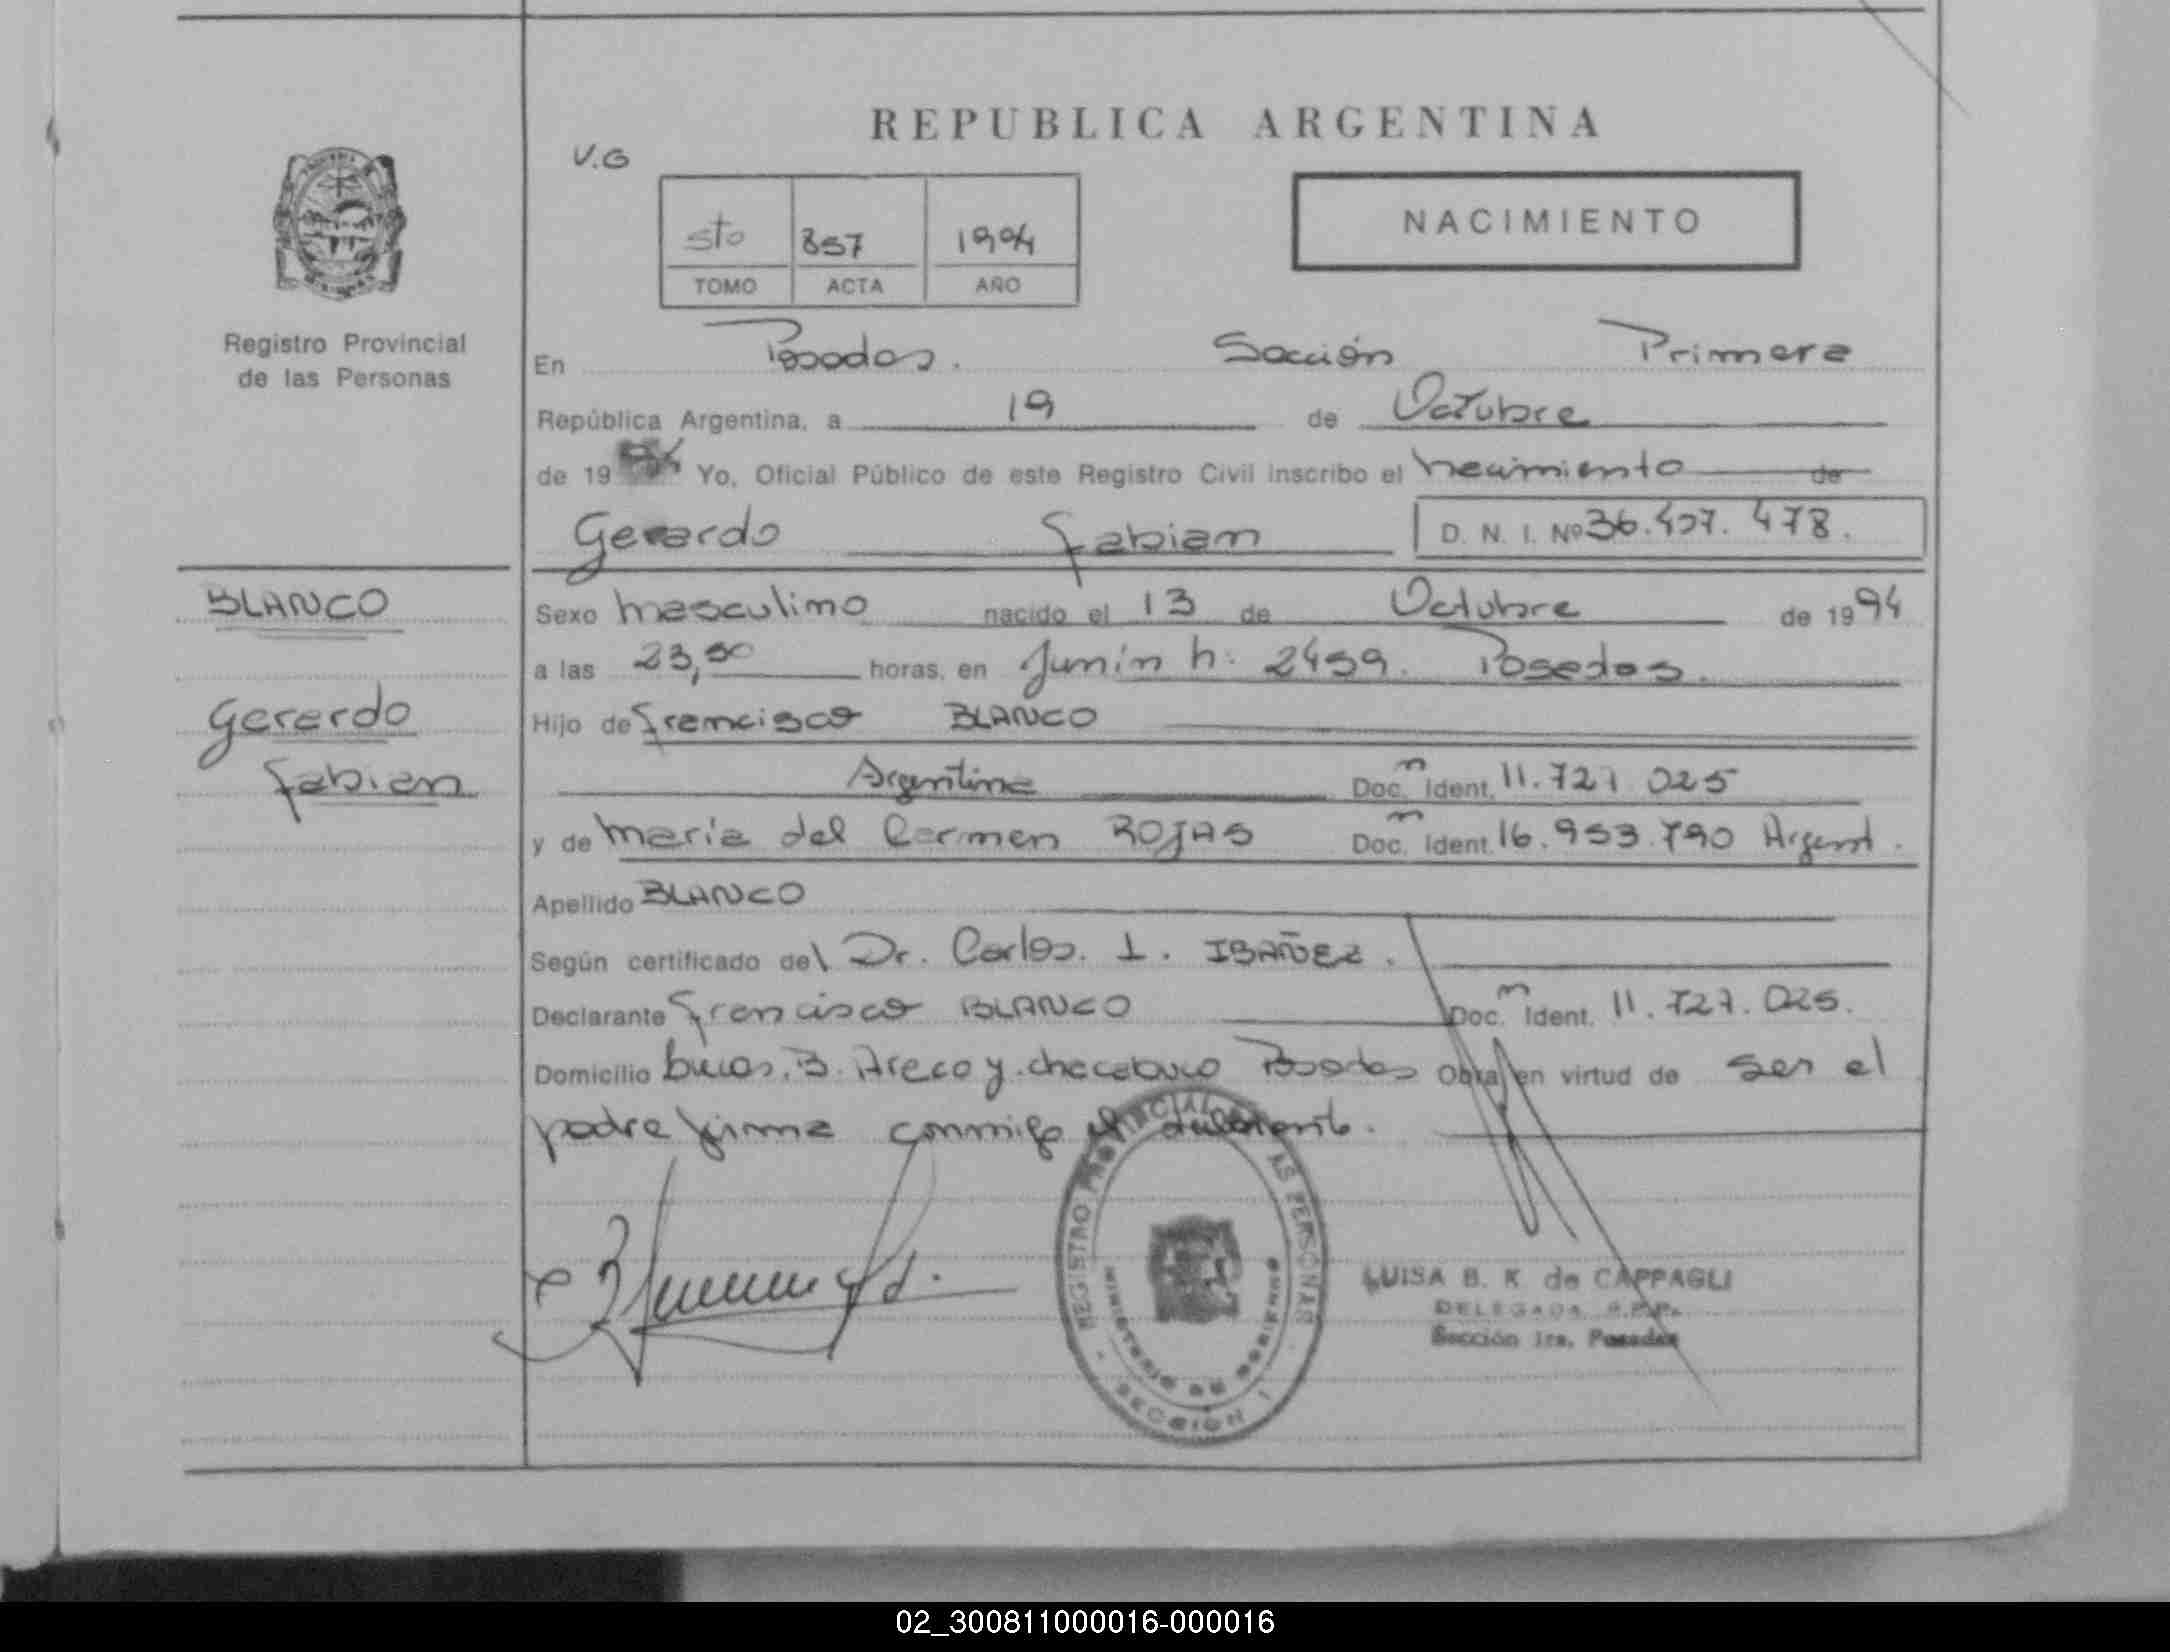 REPUBLICA ARGENTINA
V.G
NACIMIENTO
5to 857 1994
TOMO ACTA AÑO
Registro Provincial
de las Personas
En Posadas. Sección Primera
República Argentina, a 19 de Octubre
de 1994 Yo, Oficial Público de este Registro Civil inscribo el nacimiento de
Gerardo Fabian D. N. I. Nº 36.407.478.
BLANCO
Gerardo
Fabian
Sexo masculino nacido el 13 de Octubre de 1994
a las 23,50 horas, en Junín n: 2459. Posadas.
Hijo de Francisco BLANCO
Argentina Doc. n Ident. 11.727.025
y de María del Carmen ROJAS Doc. n Ident. 16.953.790 Argent.
Apellido BLANCO
Según certificado del Dr. Carlos. I. IBAÑEZ.
Declarante Francisco BLANCO Doc. n Ident. 11.727.025.
Domicilio B. Areco y chacabuco Posadas Obra en virtud de ser el
padre firma conmigo el
REGISTRO PROVINCIAL AS PERSONAS
MINISTERIO DE GOBIERNO
SECCION 1
LUISA B. K. de CAPPAGLI
DELEGADA R.P.P.
Sección 1ra. Posadas
02_300811000016-000016